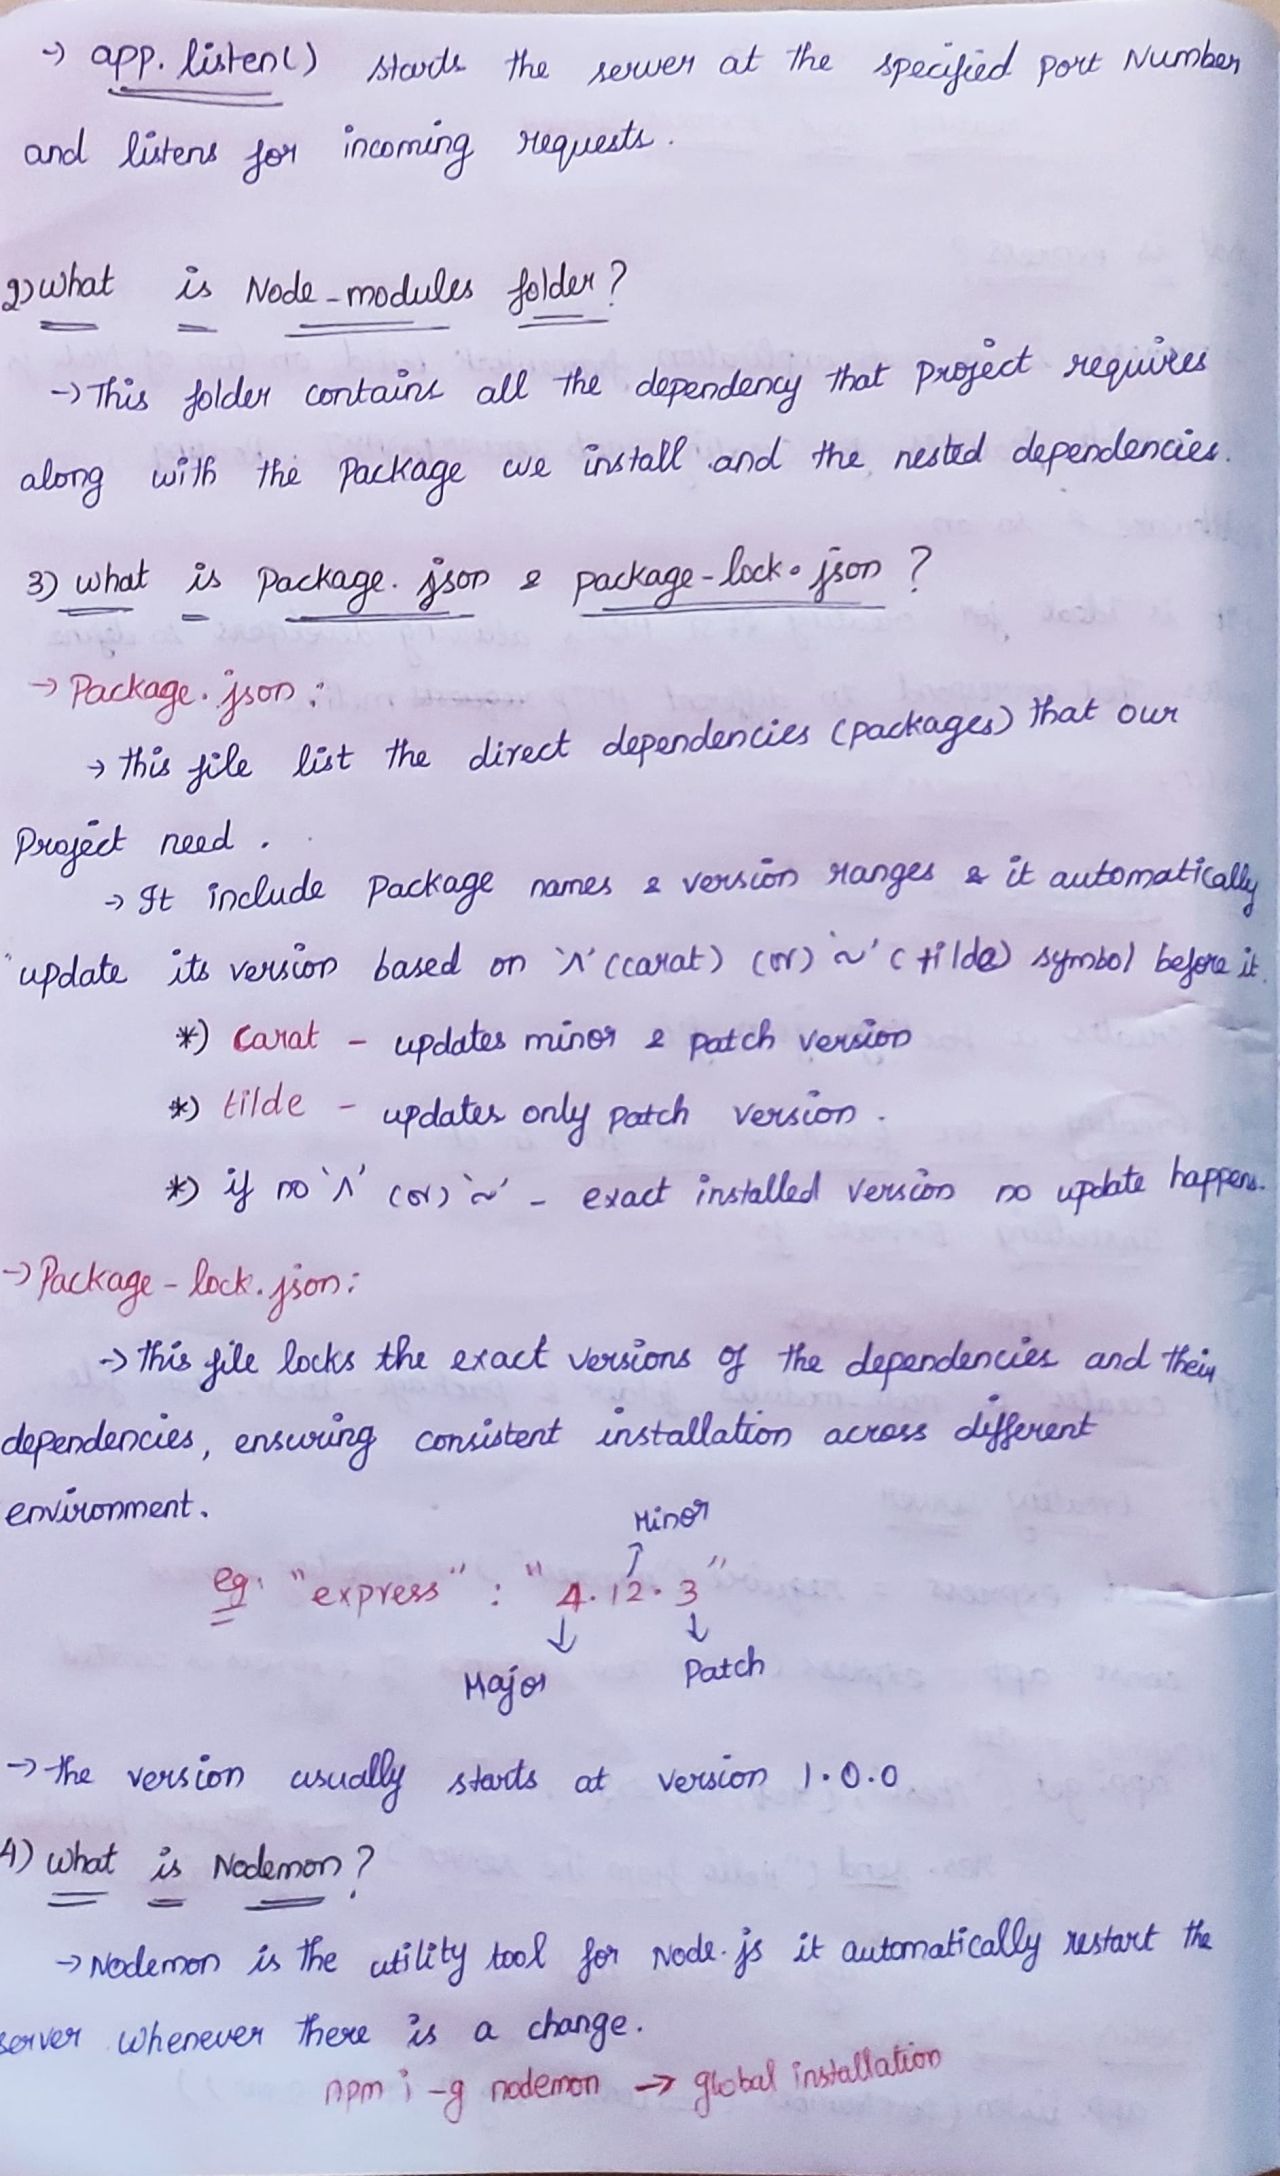 → app.listen() starts the server at the specified port Number
and listens for incoming requests.
2) what is Node-modules folder?
→ This folder contains all the dependency that project requires
along with the package we install and the nested dependencies.
3) what is package.json & package-lock.json ?
→ Package.json :
→ this file list the direct dependencies (packages) that our
project need .
→ It include package names & version ranges & it automatically
update its version based on '^' (carat) (or) '~' (tilde) symbol before it.
*) carat - updates minor & patch version
*) tilde - updates only patch version .
*) if no '^' (or) '~' - exact installed version no update happens.
→ Package-lock.json :
→ this file locks the exact versions of the dependencies and their
dependencies, ensuring consistent installation across different
environment.
Minor
eg: "express" : "4.12.3"
Major Patch
→ the version usually starts at version 1.0.0
4) what is Nodemon ?
→ Nodemon is the utility tool for Node.js it automatically restart the
server whenever there is a change.
npm i -g nodemon → global installation